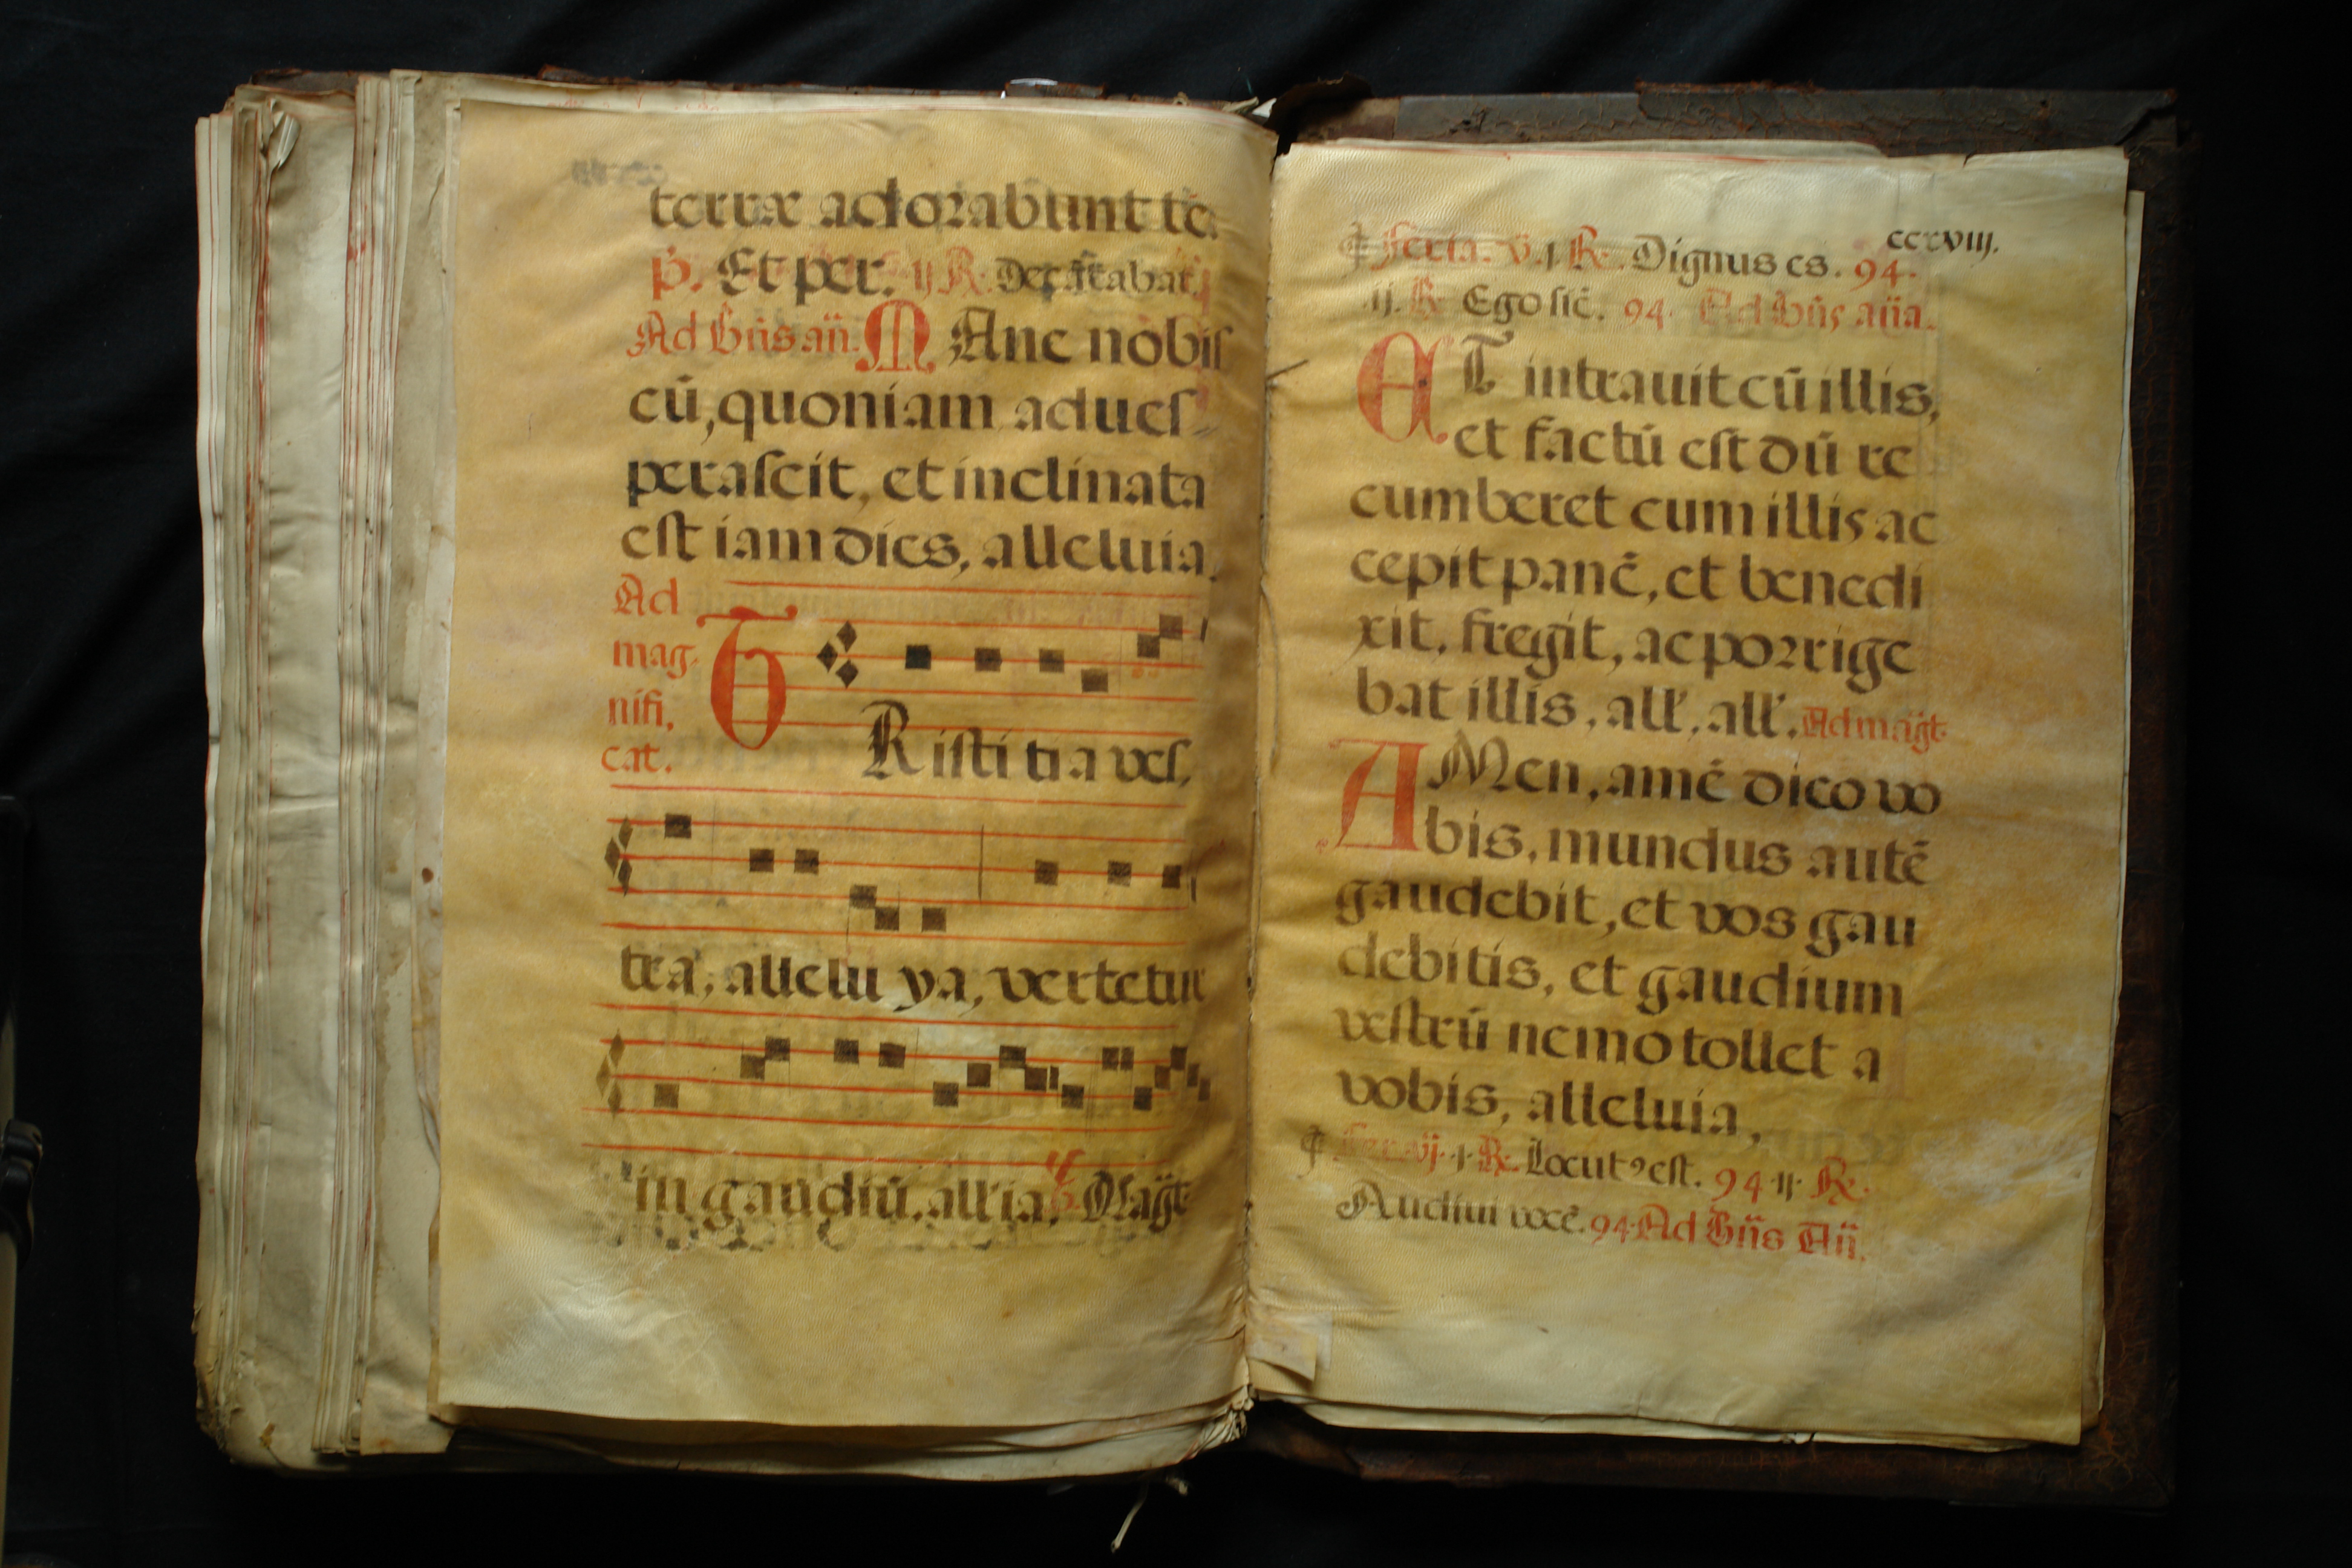 terræ adorabunt te.
p. Et per. ij R. Dec
Ad Bn̄s an̄. M Anc nobis
cū, quoniam adues
perascit, et inclinata
est iam dies, alleluia.
Ad
mag
nifi,
cat.
T Risti tia ves,
tra, allelu ya, vertetur
in gaudiū, all'ia. Mag̈t
ccxviij.
Feria. v. j R. Dignus es. 94.
.ij. R. Ego sic̄. 94. Ad Bn̄s an̄a.
ET intrauit cū illis,
et factū est dū re
cumberet cum illis ac
cepit panē, et benedi
xit, fregit, ac porrige
bat illis, all', all'. Ad mag̈t
AMen, amē dico vo
bis, mundus autē
gaudebit, et vos gau
debitis, et gaudium
vestrū nemo tollet a
vobis, alleluia,
Fer. vj. j. R. Locutꝰ est. 94 ij R.
Audiui vocē. 94. Ad Bn̄s An̄.